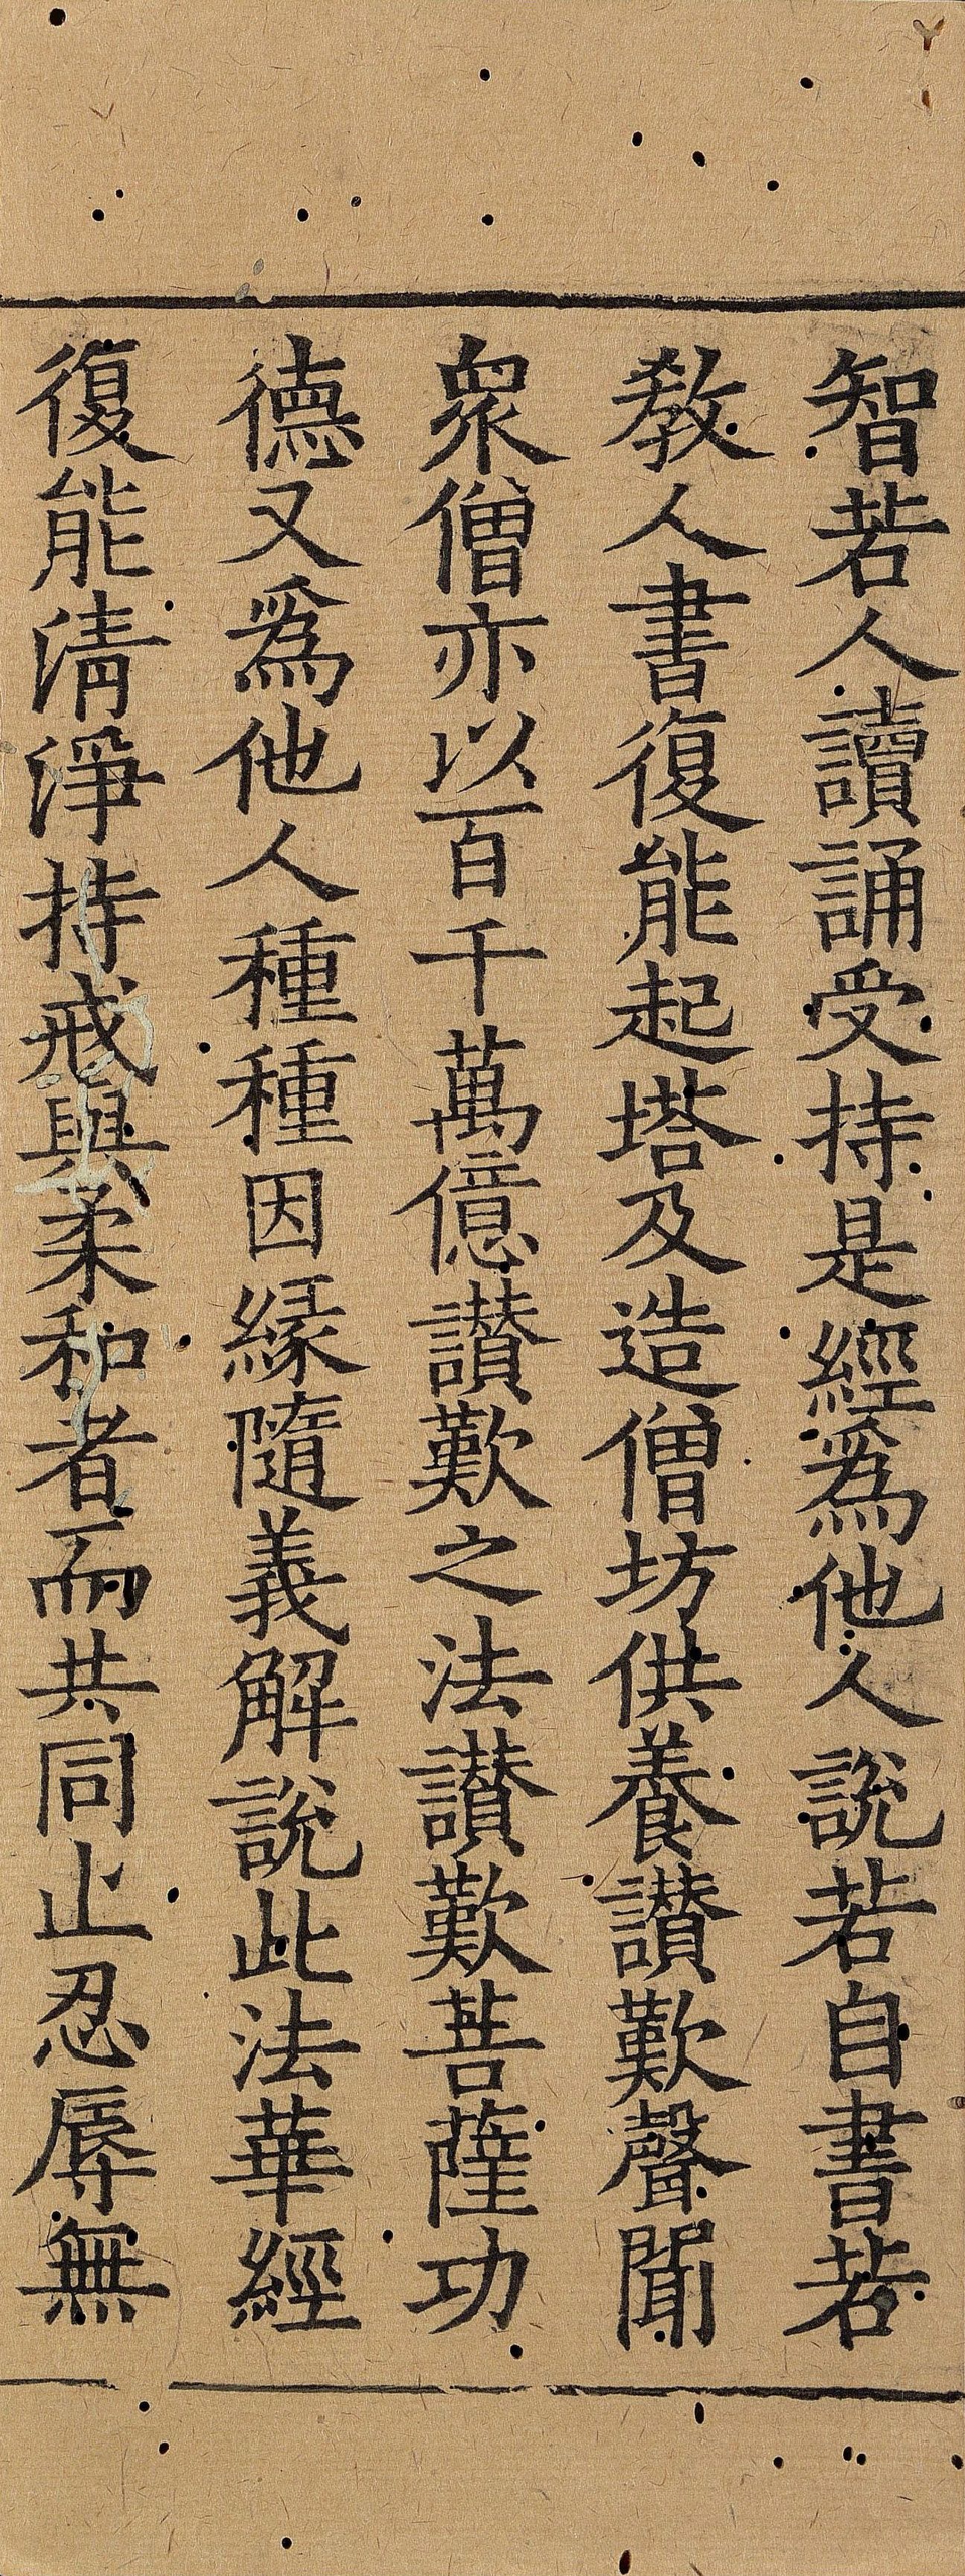 智若人讀誦受持是經爲他人說若自書若
教人書復能起塔及造僧坊供養讃歎聲聞
衆僧亦以百千萬億讃歎之法讃歎菩薩功
德又爲他人種種因緣隨義解說此法華經
復能清淨持戒與柔和者而共同止忍辱無